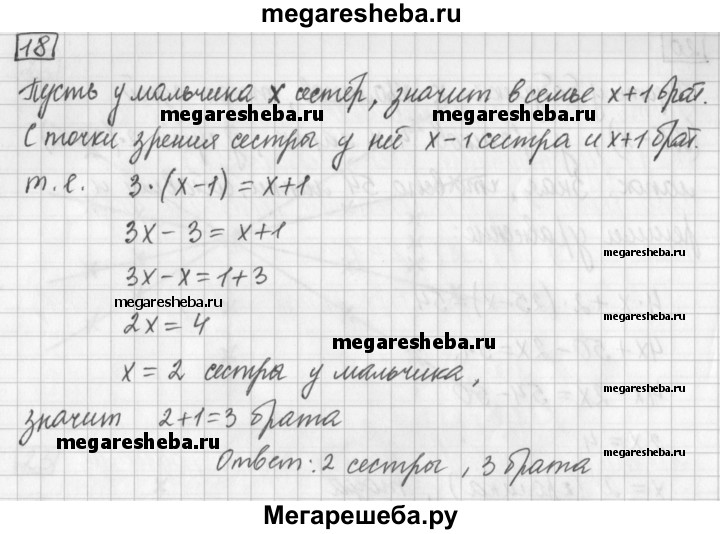 megaresheba.ru
18
Пусть у мальчика x сестёр, значит в семье x+1 брат.
megaresheba.ru megaresheba.ru
С точки зрения сестры у неё x-1 сестра и x+1 брат.
т.е. 3·(x-1)=x+1
3x-3=x+1
megaresheba.ru
3x-x=1+3
megaresheba.ru
2x=4
megaresheba.ru
x=2 сестры у мальчика,
megaresheba.ru
значит 2+1=3 брата
megaresheba.ru
megaresheba.ru
Ответ: 2 сестры, 3 брата
Мегарешеба.ру